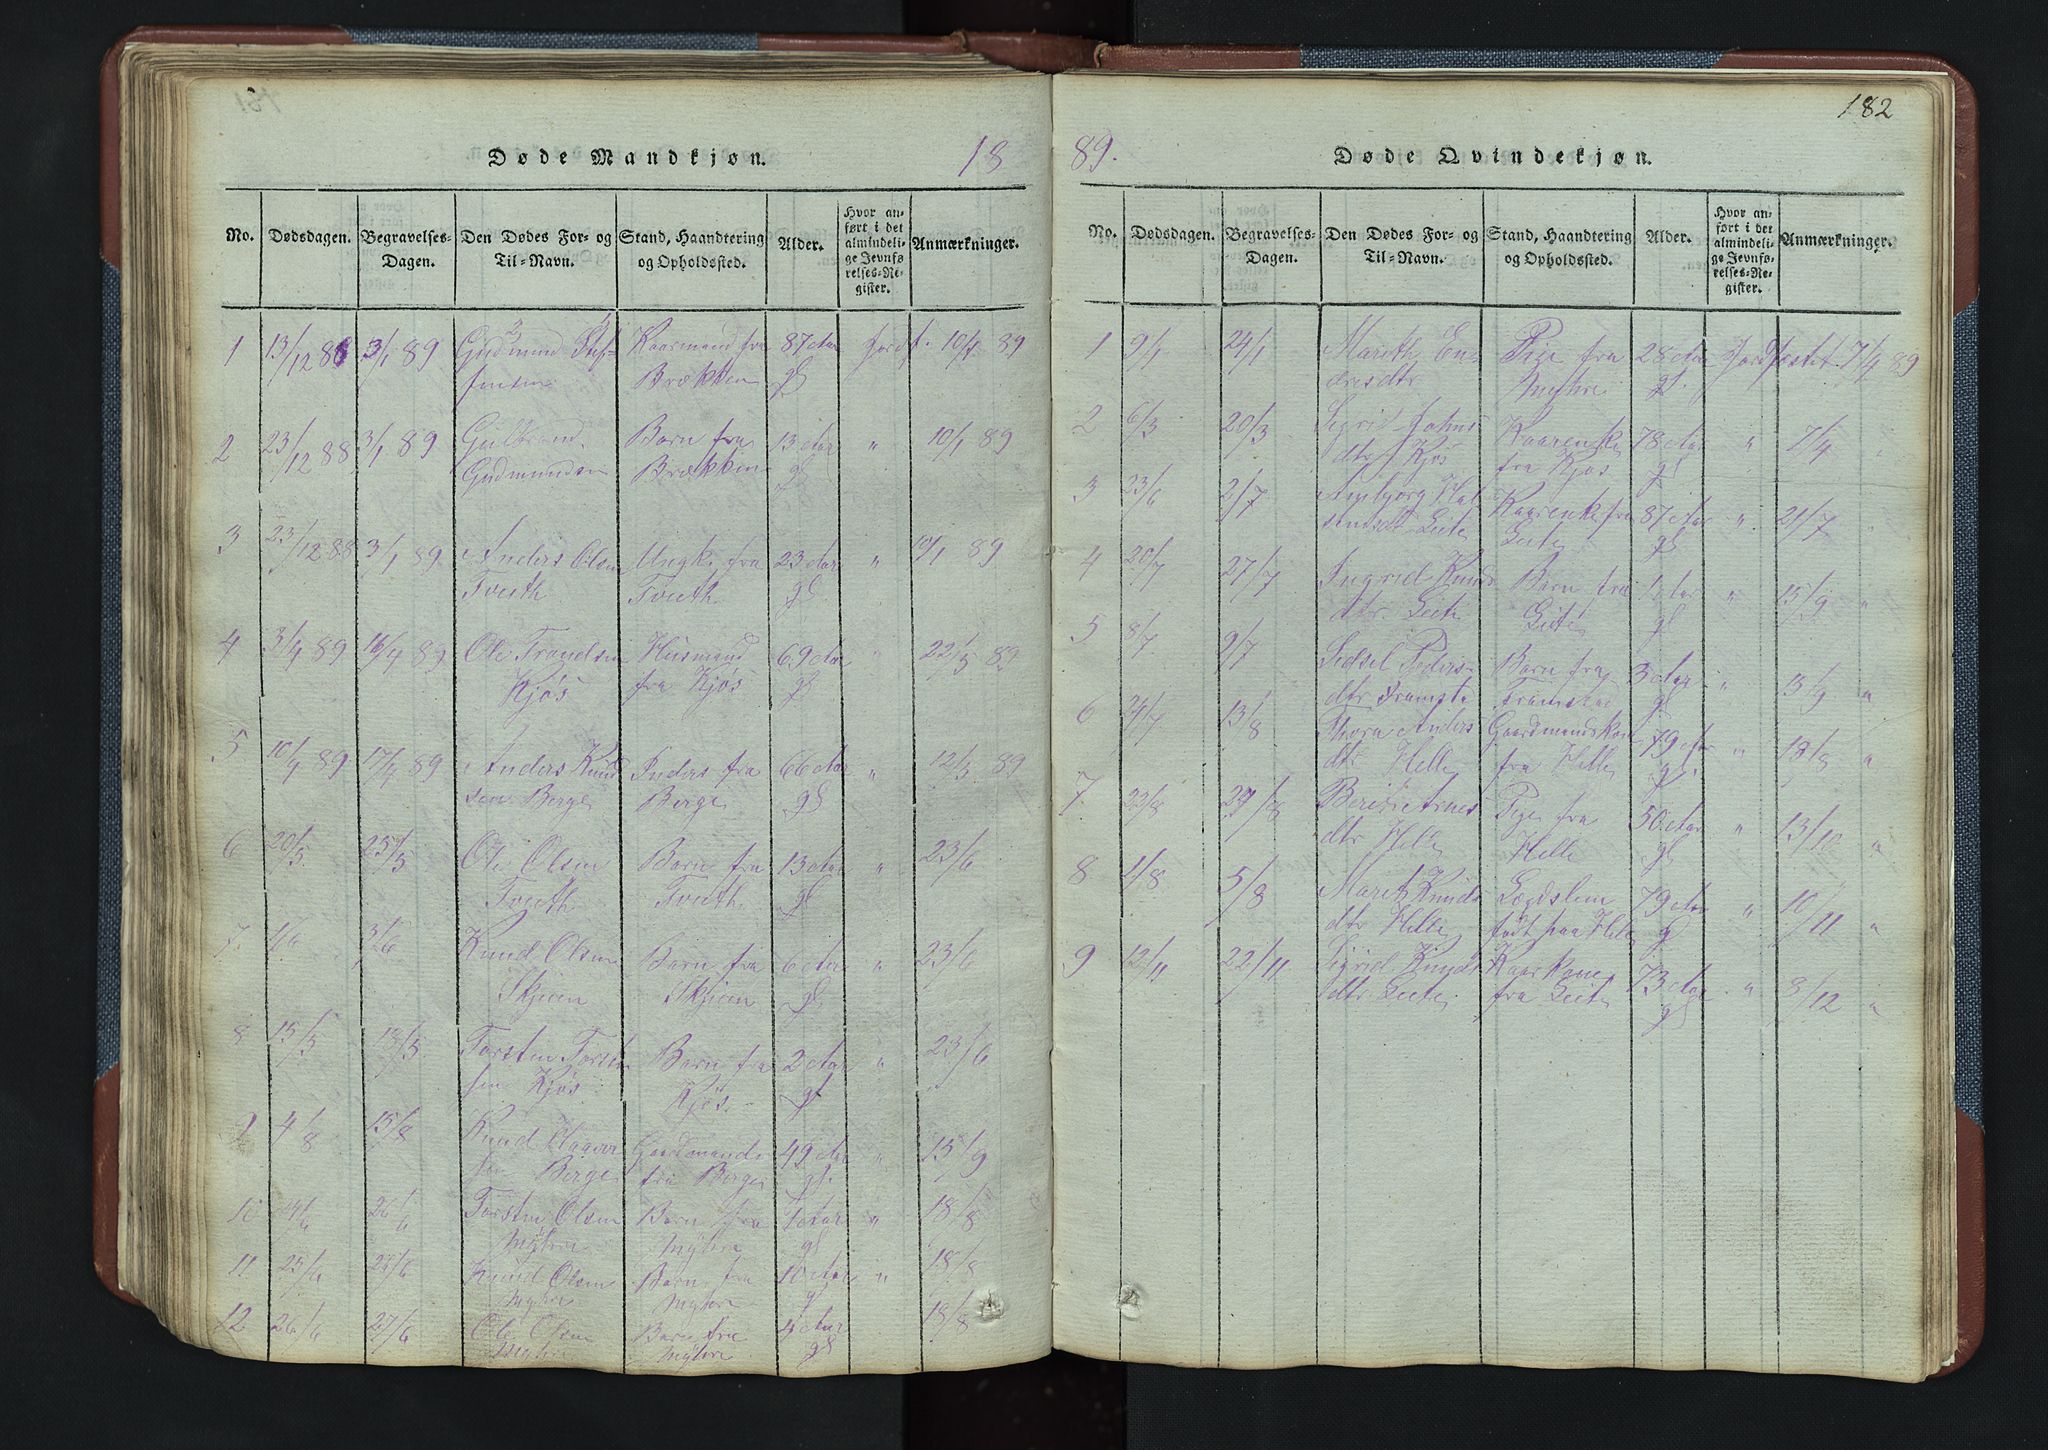 181
Døde Mandkjøn.
18
No.
Dødsdagen.
Begravelses-
Dagen.
Den Dødes For- og
Til-Navn.
Stand, Haandtering
og Opholdssted.
Alder.
Hvor an-
ført i det
almindeli-
ge Jevnfø-
relses-Re-
gister.
Anmærkninger.
1 13/12 88 3/1 89 Gudmund Kaarmand fra 87 Aar Jordf. 10/1 89
Brækken gl
2 23/12 88 3/1 89 Gulbrand Barn fra 13 Aar " 10/1 89
Gudmundsen Brækken gl
3 23/12 88 3/1 89 Anders Olsen Ungk. fra 23 Aar " 10/1 89
Tveith Tveith gl
4 3/4 89 16/4 89 Ole Trondsen Husmand 69 Aar " 22/5 89
Kjøs fra Kjøs gl
5 10/4 89 17/4 89 Anders Knud Inders fra 66 Aar " 12/5 89
sen Berge Berge gl
6 20/5 25/5 Ole Olsen Barn fra 13 Aar " 23/6
Tveith Tveith gl
7 1/6 3/6 Knud Olsen Barn fra 6 Aar " 23/6
Skjeen Skjeen gl
8 15/5 18/5 Torsten Torsten Barn fra 2 Aar " 23/6
sen Kjøs Kjøs gl
9 4/8 15/8 Knud Gaardmand 49 Aar " 15/9
sen Berge fra Berge gl.
10 26/6 Torsten Olsen Barn fra 1 Aar " 18/8
Myhre Myhre gl
11 25/6 Knud Olsen Barn fra 10 Aar " 18/8
Myhre Myhre gl
12 26/6 27/6 Ole Olsen Barn fra 4 Aar 18/8
Myhre Myhre gl
182
89.
Døde Qvindekjøn.
No.
Dødsdagen.
Begravelses-
Dagen.
Den Dødes For- og
Til-Navn.
Stand, Haandtering
og Opholdssted.
Alder.
Hvor an-
ført i det
almindeli-
ge Jevnfø-
relses-Re-
gister.
Anmærkninger.
1 9/1 24/1 Marith En Pige fra 28 Aar Jordfæstet 7/4 89
dresdtr Myhre gl.
2 6/3 20/3 Sigrid Johns Kaarenke 78 Aar " 7/4 "
dtr Kjøs fra Kjøs gl
3 23/6 2/7 Ingbjørg Hal Kaarenke fra 87 Aar " 21/7 "
Geite Geite gl
4 20/7 27/7 Ingrid Knuds Barn fra 1 Aar " 15/9 "
dtr. Geite Geite gl
5 8/7 9/7 Sidsel Peders Barn fra 3 Aar " 15/9 "
dtr Framsta Framstad gl
6 13/8 Thora Anders Gaardmandskone 79 Aar " 18/8 "
dtr Helle fra Helle gl.
7 23/8 29/8 Arnes Pige fra 50 Aar " 13/10 "
dtr Helle Helle gl
8 1/8 5/8 Marit Knuds Lægdslem 79 Aar " 10/11 "
dtr Helle født paa Helle gl
9 12/11 22/11 Sigrid Knuds Kaarkone 73 Aar " 8/12 "
dtr Geite fra Geite gl